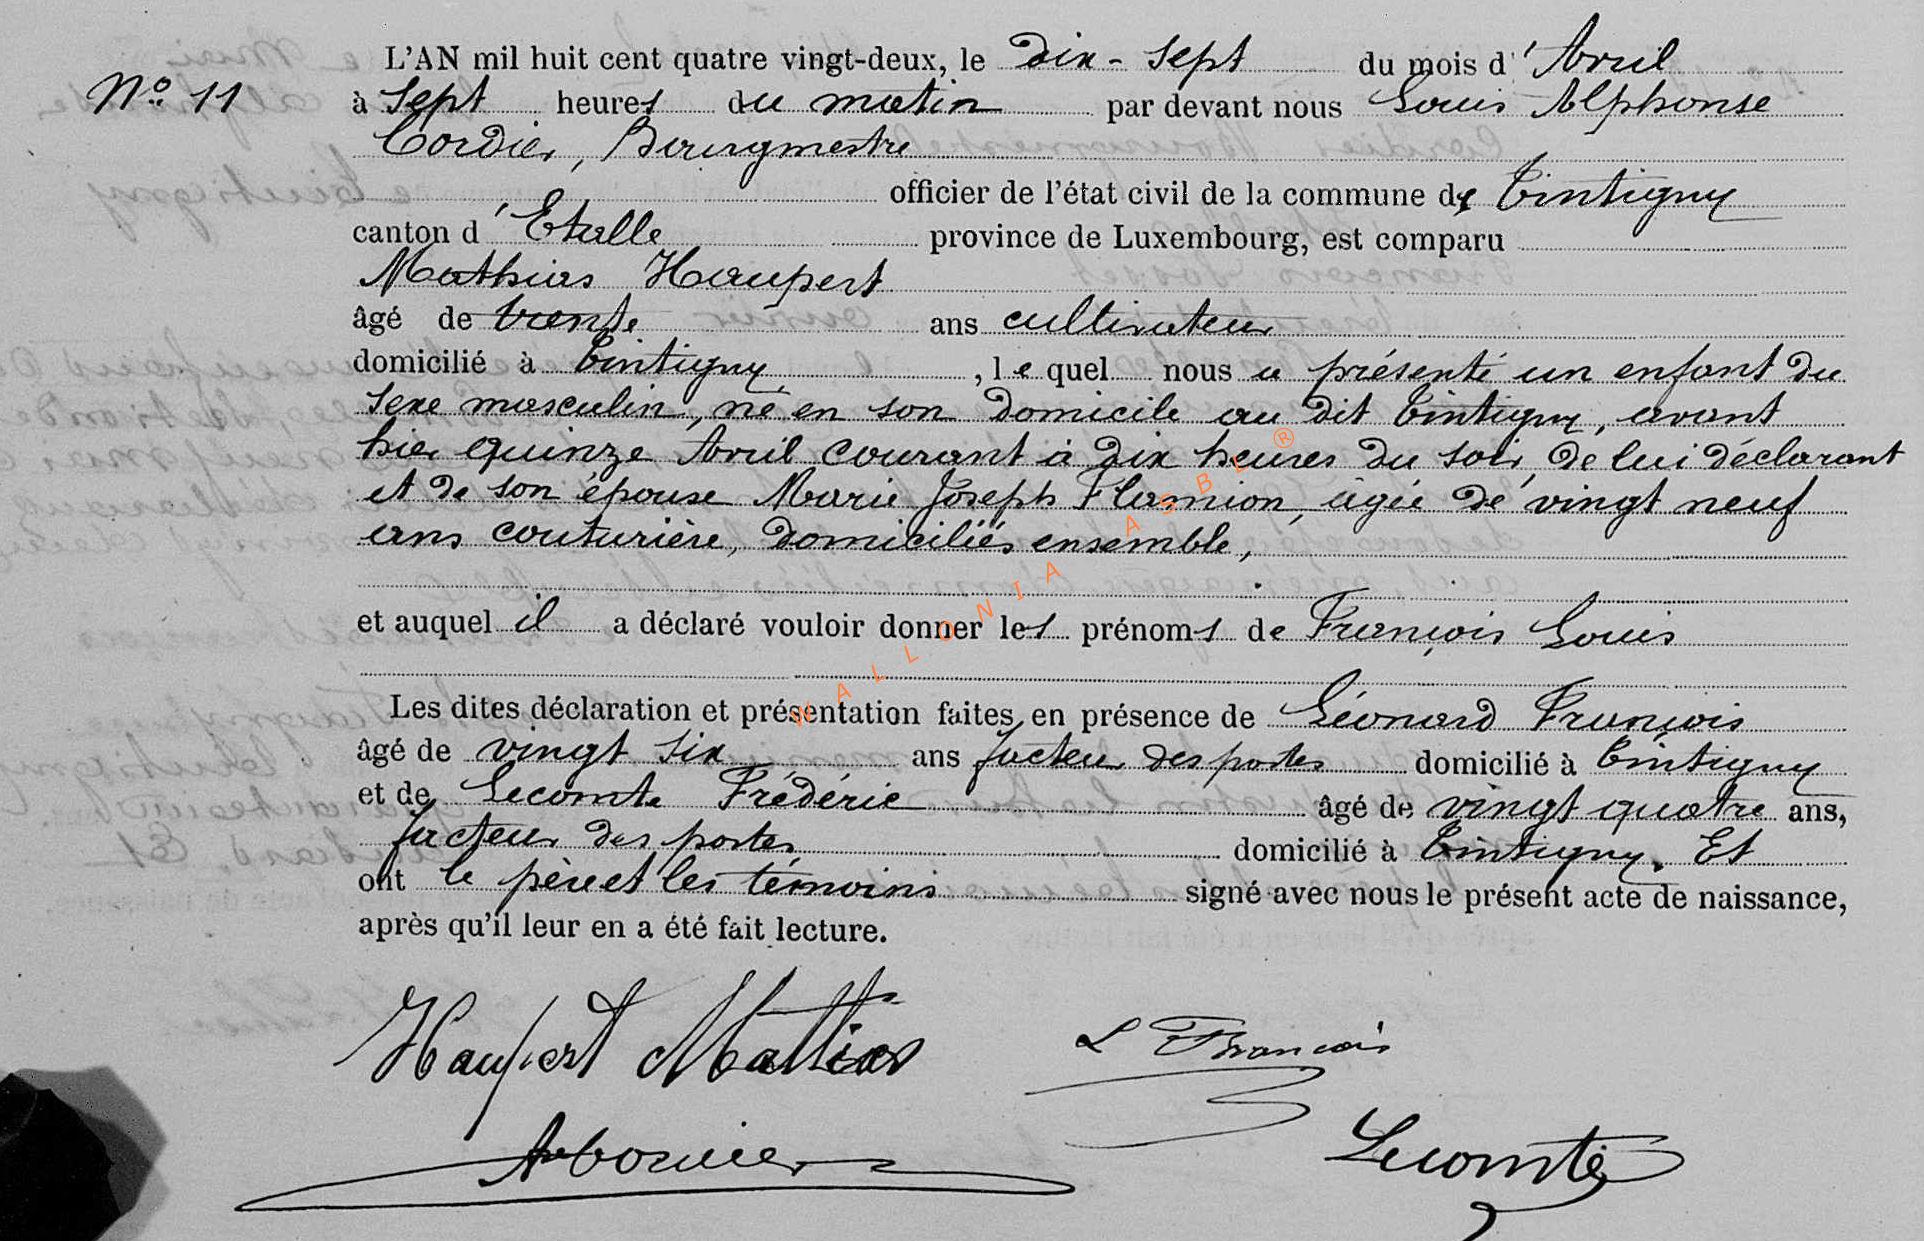 L'AN mil huit cent quatre vingt-deux, le dix-sept du mois d'Avril
N° 11 à sept heures du matin par devant nous Louis Alphonse
Cordier, Bourgmestre
officier de l'état civil de la commune de Tintigny
canton d'Etalle province de Luxembourg, est comparu
Mathias Haupert
âgé de trente ans cultivateur
domicilié à Tintigny, lequel nous a présenté un enfant du
sexe masculin, né en son domicile au dit Tintigny, avant
hier quinze Avril courant à dix heures du soir, de lui déclarant
et de son épouse Marie Joseph Flamion, âgée de vingt neuf
ans couturière, domiciliés ensemble,
et auquel il a déclaré vouloir donner les prénoms de François Louis
Les dites déclaration et présentation faites en présence de Léonard François
âgé de vingt six ans facteur des postes domicilié à Tintigny
et de Lecomte Frédéric âgé de vingt quatre ans,
facteur des postes domicilié à Tintigny. Et
ont le père et les témoins signé avec nous le présent acte de naissance,
après qu'il leur en a été fait lecture.
Haupert Mathias L François
Lecomte
WALLONIA ASBL ®